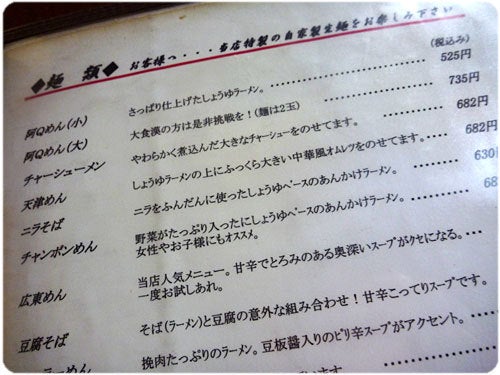 ◆麺 類◆ お客様へ・・・当店特製の自家製生麺をお楽しみ下さい
(税込み)
阿Qめん(小) さっぱり仕上げたしょうゆラーメン。 525円
阿Qめん(大) 大食漢の方は是非挑戦を！(麺は2玉) 735円
チャーシューメン やわらかく煮込んだ大きなチャーシューをのせてます。 682円
天津めん しょうゆラーメンの上にふっくら大きい中華風オムレツをのせてます。 682円
ニラそば ニラをふんだんに使ったしょうゆベースのあんかけラーメン。 630
チャンポンめん 野菜がたっぷり入ったにしょうゆベースのあんかけラーメン。 68
女性やお子様にもオススメ。
広東めん 当店人気メニュー。甘辛でとろみのある奥深いスープがクセになる。
一度お試しあれ。
豆腐そば そば(ラーメン)と豆腐の意外な組み合わせ！甘辛こってりスープです。
ーラーメン 挽肉たっぷりのラーメン。豆板醤入りのピリ辛スープがアクセント。